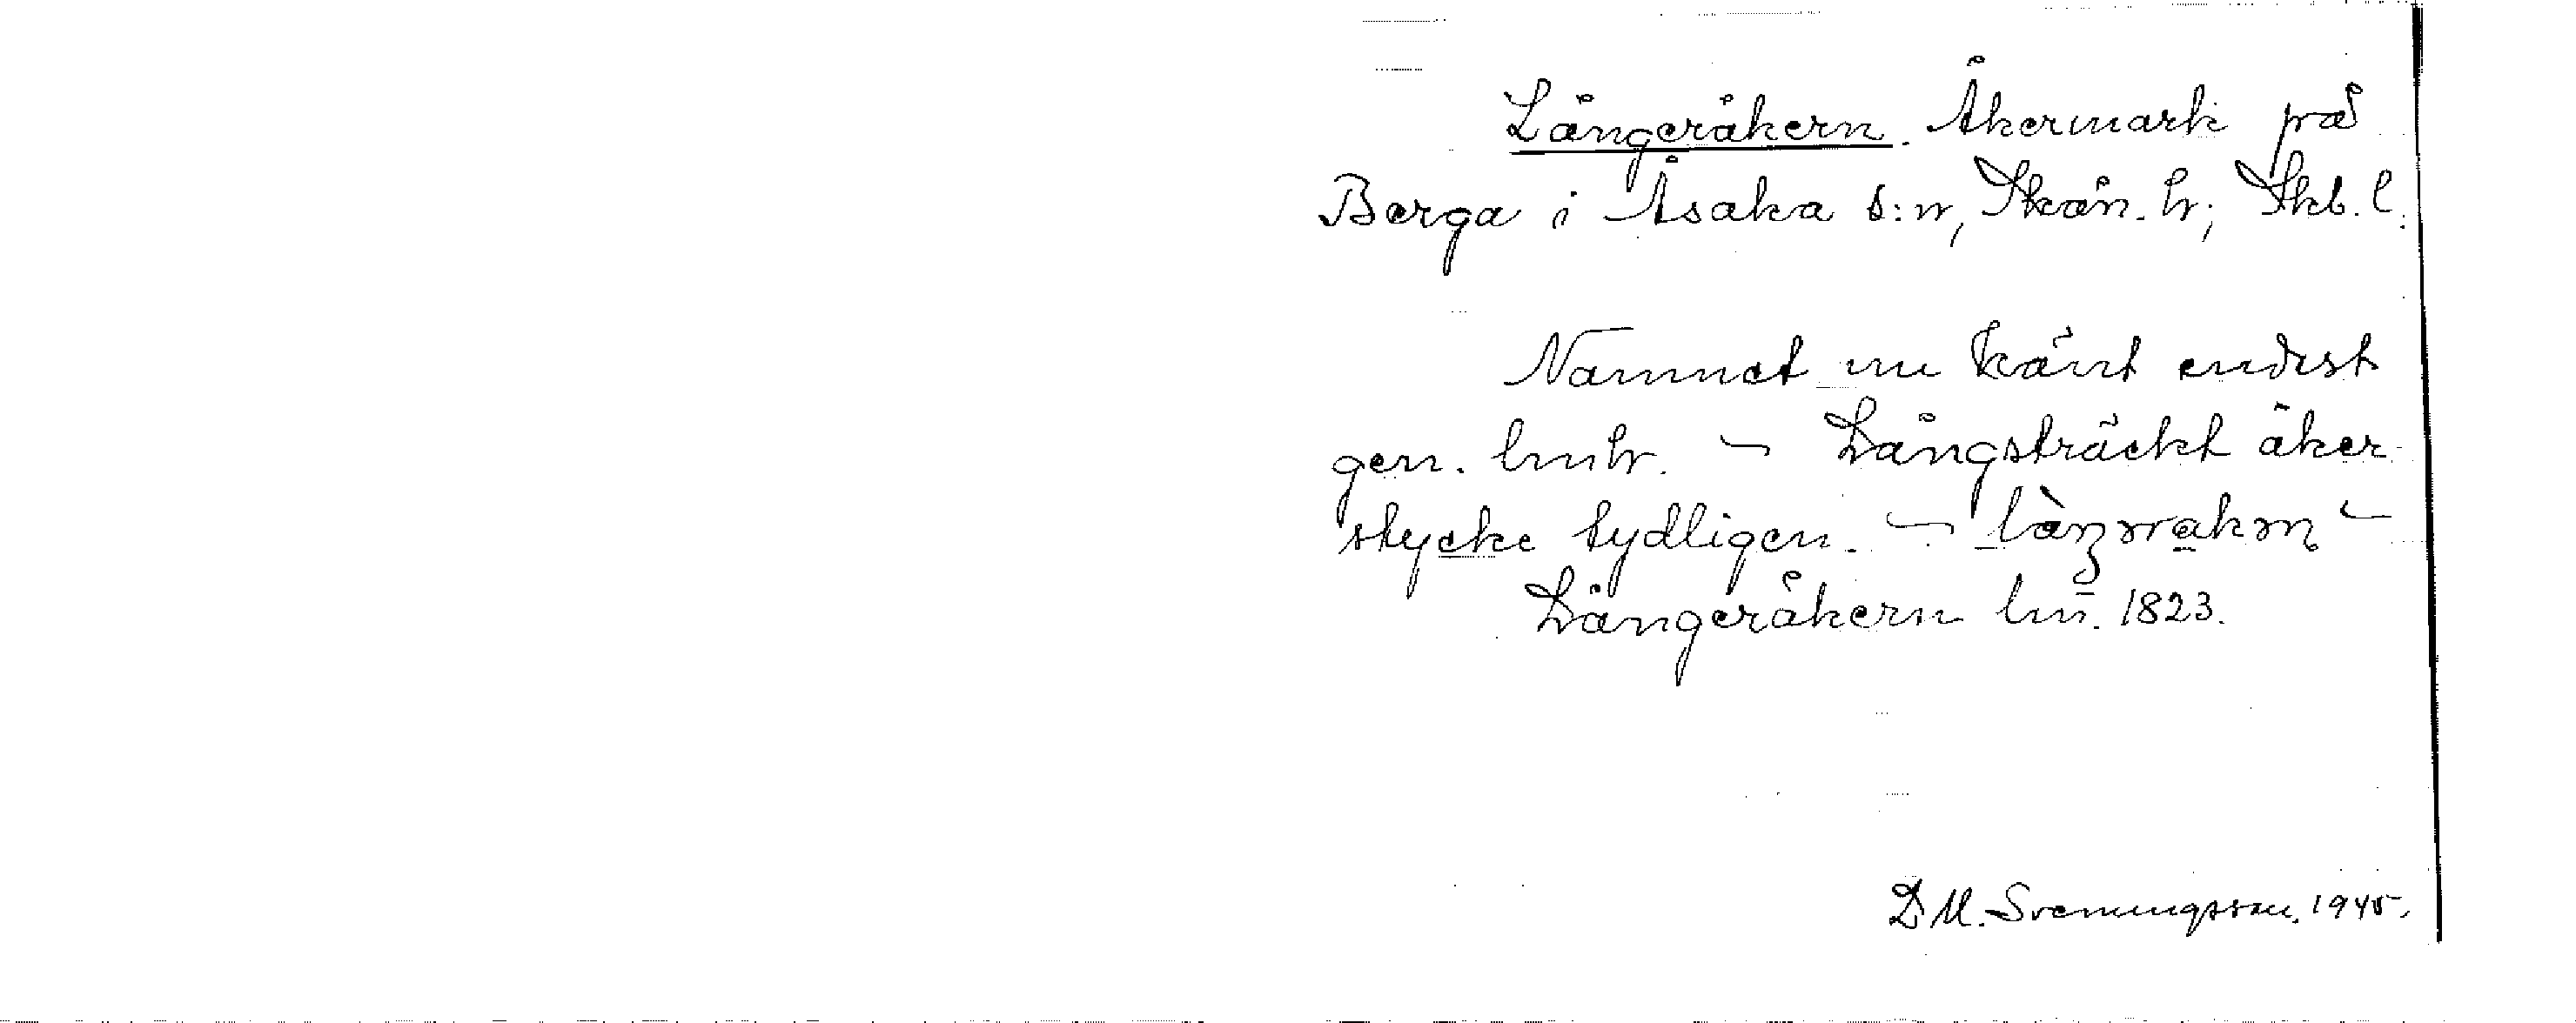 Långeråkern. Åkermark på
Berga i Åsaka s:n, Skån. h; Skb. l.
Namnet nu känt endast
gen. lmhr. – Långsträckt åker-
stycke tydligen. –
Långeråkern lm. 1823.
D M. Svenningsson. 1945.